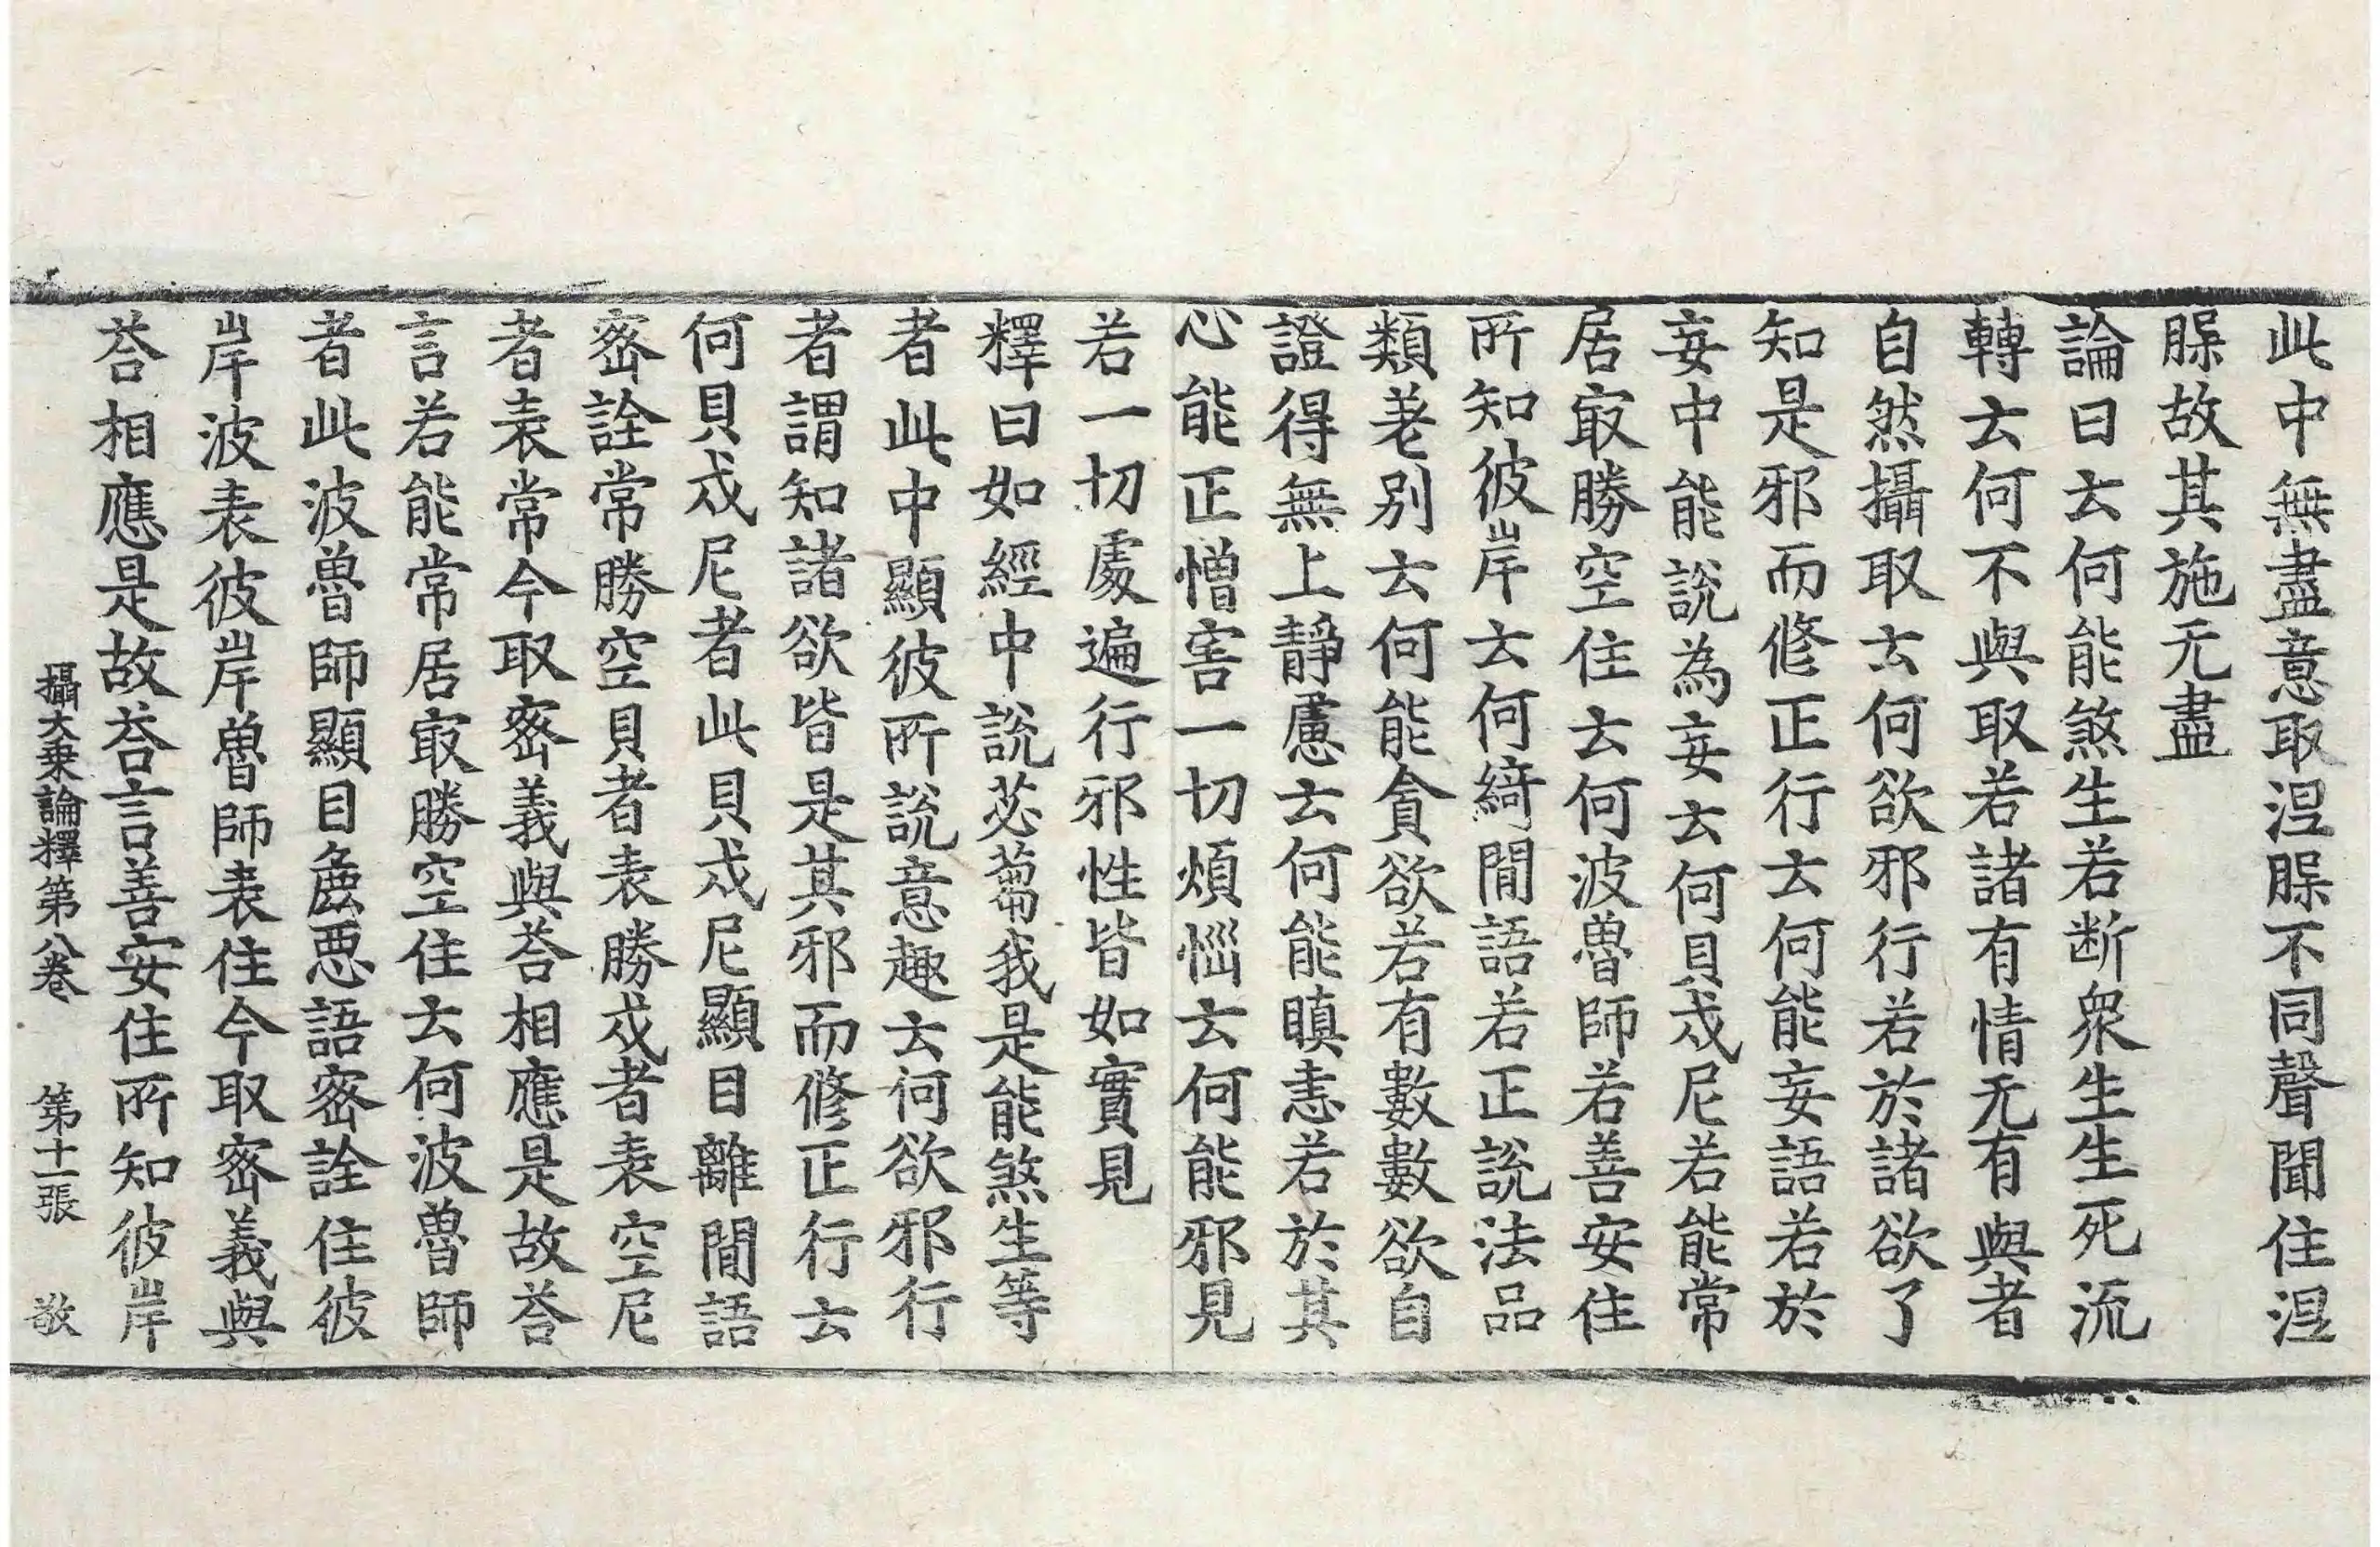 此中無盡意取涅𦙁不同聲聞住涅
𦙁故其施无盡
論曰云何能煞生若断衆生生死流
轉云何不與取若諸有情无有與者
自然攝取云何欲邪行若於諸欲了
知是邪而修正行云何能妄語若於
妄中能說為妄云何貝戍尼若能常
居㝡勝空住云何波魯師若善安住
所知彼岸云何綺閒語若正說法品
類差別云何能貪欲若有數數欲自
證得無上靜慮云何能瞋恚若於其
心能正憎害一切煩惱云何能邪見
若一切處遍行邪性皆如實見
釋曰如經中說苾蒭我是能煞生等
者此中顯彼所說意趣云何欲邪行
者謂知諸欲皆是其邪而修正行云
何貝戍尼者此貝戍尼顯目離閒語
密詮常勝空貝者表勝戍者表空尼
者表常今取密義與荅相應是故荅
言若能常居㝡勝空住云何波魯師
者此波魯師顯目麁惡語密詮住彼
岸波表彼岸魯師表住今取密義與
荅相應是故荅言善安住所知彼岸
攝大乗論釋第八卷　第十一張　敬